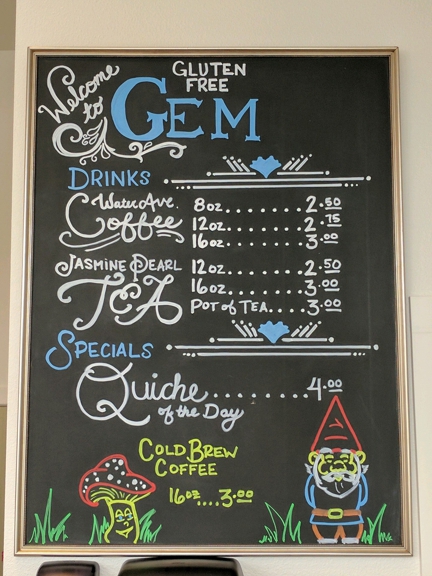 Welcome to
GLUTEN
FREE
GEM
DRINKS
Water Ave. Coffee
8oz.......2.50
12oz.......2.75
16oz.......3.00
JASMINE PEARL
TEA
12oz.......2.50
16oz.......3.00
POT of TEA....3.00
SPECIALS
Quiche.........4.00
of the Day
COLD BREW
COFFEE
16oz....3.00